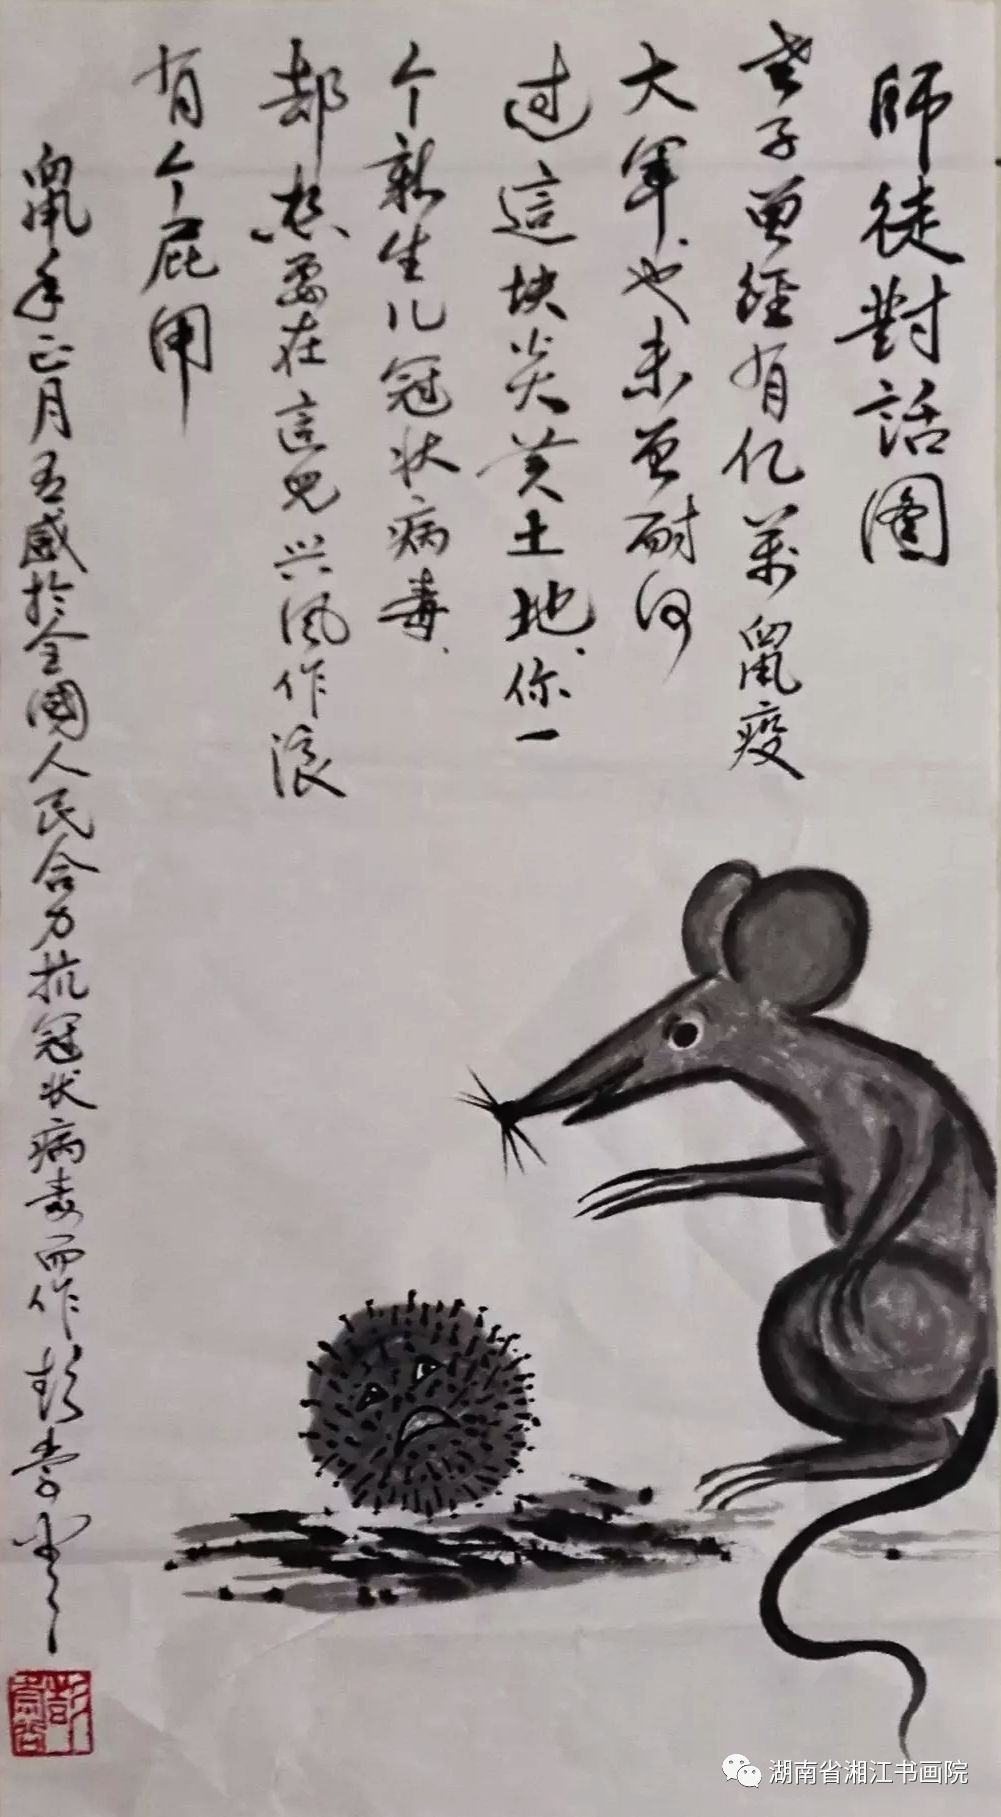 師徒對話图
老子曾經有亿萬鼠疫
大军、也未曾耐何
过這块炎黄土地、你一
个新生儿冠状病毒、
却想要在這兒兴风作浪
有个屁用
鼠年正月五感於全國人民合力抗冠状病毒而作彭崇
湖南省湘江书画院